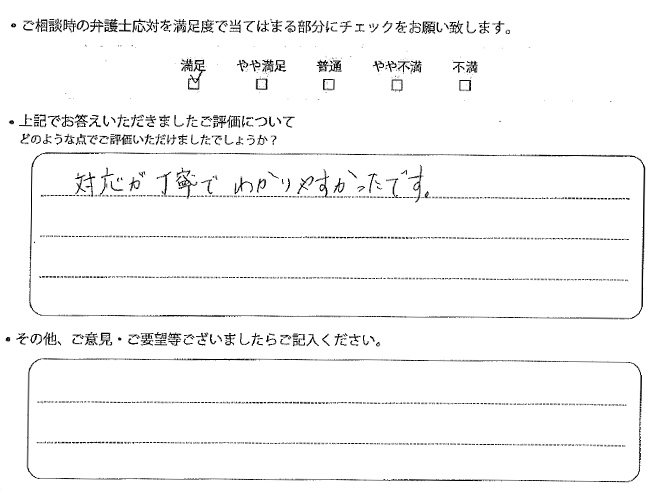 ・ご相談時の弁護士応対を満足度で当てはまる部分にチェックをお願い致します。
満足 やや満足 普通 やや不満 不満
☑ □ □ □ □
・上記でお答えいただきましたご評価について
どのような点でご評価いただけましたでしょうか？
対応が丁寧でわかりやすかったです。
・その他、ご意見・ご要望等ございましたらご記入ください。